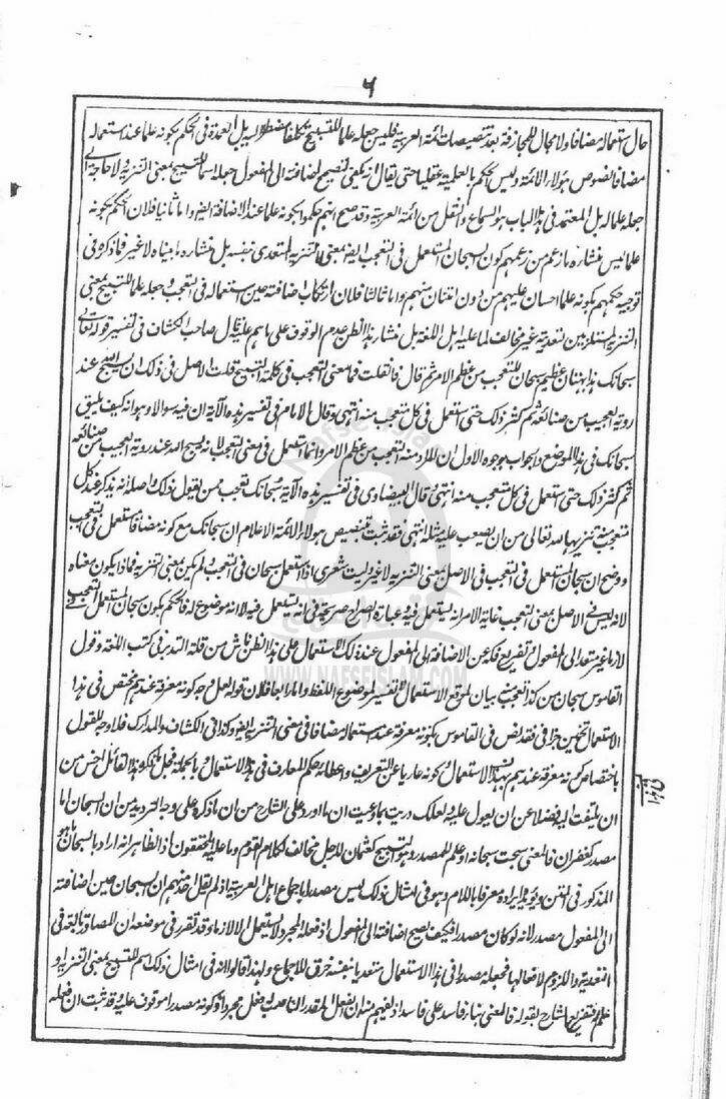 ٦
حال استعماله مضافا ولا مجال للمجازفة بعد تنصيصات ائمة العربية فليس جعله علما للتسبيح تكلفا بل العمدة فى الحكم بكونه علما عند استعماله
مضافا نصوص هؤلاء الائمة وليس الحكم بالعلمية عقليا حتى يقال انه يكفى لتصحيح اضافته الى المفعول جعله اسما للتسبيح بمعنى التنزيه ولا حاجة الى
جعله علما له بل المعتمد فى هذا الباب هو السماع والنقل من ائمة العربية وقد صح انهم حكموا بكونه علما عند الاضافة ايضا واما ثانيا فلان الحكم بكونه
علما ليس منشاءه ما زعم من زعمهم كون سبحان المستعمل فى التعجب ايضا بمعنى التنزيه المتعدى بنفسه بل منشاءه ما بيناه لا غير فما ذكره فى
توجيه حكمهم بكونه علما احسان عليهم من دون امتنان منهم واما ثالثا فلان ارتكاب اضافته حين استعماله فى التعجب وجعله علما للتسبيح بمعنى
التنزيه المستلزمين لتعديته غير مخالف لما عليه اهل اللغة بل منشاء هذا الظن عدم الوقوف على ما هم عليه قال صاحب الكشاف فى تفسير قوله تعالى
سبحانك هذا بهتان عظيم سبحان للتعجب من عظم الامر ثم قال فان قلت فما معنى التعجب فى كلمة التسبيح قلت الاصل فى ذلك ان يسبح الله عند
روية العجيب من صنائعه ثم كثر ذلك حتى استعمل فى كل متعجب منه انتهى وقال الامام فى تفسير هذه الآية ان فيه سوالا وهو انه كيف يليق
سبحانك فى هذا الموضع والجواب بوجوه الاول ان المراد منه التعجب من عظم الامر وانما استعمل فى معنى التعجب لانه يسبح الله عند روية العجيب من صنائعه
ثم كثر ذلك حتى استعمل فى كل متعجب منه انتهى وقال البيضاوى فى تفسير هذه الآية سبحانك تعجب ممن يقول ذلك واصله انه يذكر عند كل
متعجب منه تنزيها لله تعالى من ان يصعب عليه مثله انتهى فقد ثبت بتنصيص هؤلاء الائمة الاعلام ان سبحانك مع كونه مضافا مستعمل فى التعجب
ووضح ان سبحان المستعمل فى التعجب فى الاصل بمعنى التنزيه لا غير وليت شعرى اذا استعمل سبحان فى التعجب ولم يكن بمعنى التنزيه فماذا يكون معناه
لانه ليس فى الاصل بمعنى التعجب غاية الامر انه يستعمل فيه عبارة الصراح صريحة فى انه يستعمل فيه لا انه موضوع له فالحكم بكون سبحان المستعمل فى التعجب
لازما غير متعد الى المفعول وتفريع فكه عن الاضافة الى المفعول عند ذلك الاستعمال على هذا الظن ناش من قلة التدبر فى كتب اللغة وقول
القاموس سبحان من كذا تعجب بيان لموقع الاستعمال لا تفسير لموضوع اللفظ واما رابعا فلان قوله لعل وجه كونه معرفة عندهم مختص فى هذا
الاستعمال تخمين جزا فى فقد نص فى القاموس بكونه معرفة عند استعماله مضافا فى معنى التنزيه ايضا وكذا فى الكشاف والمدارك فلا وجه للقول
باختصاص كونه معرفة عندهم بهذا الاستعمال بكونه عاريا عن التعريف واعطائه حكم المعارف فى هذا الاستعمال وبالجملة فجل ما ذكره هذا القائل اخس من
ان يلتفت اليه فضلا عن ان يعول عليه ولعلك دريت بما وعيت ان ما اورد على الشارح من ان ما ذكره على وجه الترديد من ان السبحان اما
مصدر كغفران فالمعنى سبحت سبحانه او علم للمصدر وهو التسبيح كعثمان للرجل مخالف لكلام القوم وما عليه المحققون اذ الظاهر انه اراد بالسبحان ما هو
المذكور فى المتن ويؤيده ايراده معرفا باللام وهو فى امثال ذلك ليس مصدرا باجماع اهل العربية اذ لم يقل احد منهم ان سبحان حين اضافته
الى المفعول مصدر لانه لو كان مصدرا فكيف تصح اضافته الى المفعول اذ فعله المجرد لا يستعمل الا لازما وقد تقرر فى موضعه ان المصادر تابعة فى
التعدية واللزوم لافعالها فجعله مصدرا فى هذا الاستعمال متعديا بنفسه خرق للاجماع ولهذا قالوا انه فى امثال ذلك اسم للتسبيح بمعنى التنزيه او
علم فتفريع الشارح بقوله فالمعنى بناء فاسد على فاسد اذ يفهم منه ان الفعل المقدر الناصب له فعل مجرد اذ كونه مصدرا موقوف عليه وقد ثبت ان فعله
NAFSE ISLAM
WWW.NAFSEISLAM.COM